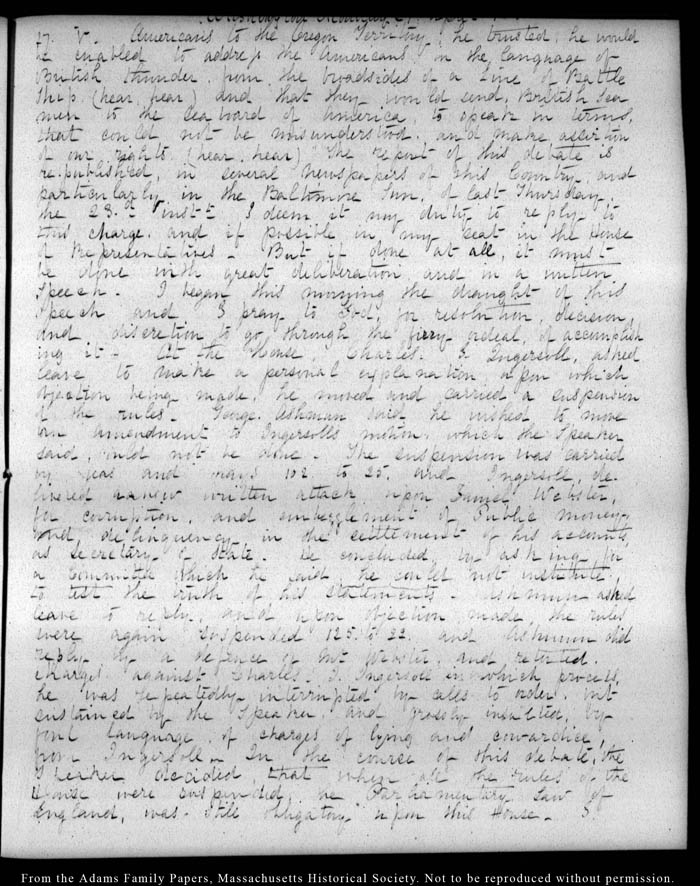 Washington Monday 27. Apr
27. V. Americans to the Oregon Territory, he trusted, he would
be enabled to address the Americans in the language of
British thunder from the broadsides of a Line of Battle
Ship. (hear, hear) and that they would send, British Sea
men to the Sea board of America, to speak in terms,
that could not be misunderstood. and make assertion
of our rights (hear. hear) The report of this debate is
republished, in several Newspapers of this Country, and
particularly in the Baltimore Sun, of last Thursday
the 23.d inst.t I deem it my duty to reply to
this charge. and if possible in my seat in the House
of Representatives — But if done at all, it must
be done with great deliberation, and in a written
Speech. I began this morning the draught of this
Speech and I pray to God, for resolution, decision,
and discretion to go through the fiery ordeal, of accomplish
ing it — At the House, Charles. J. Ingersoll, asked
leave to make a personal explanation, upon which
objection being made, he moved and carried a suspension
of the rules — George Ashmun said he wished to move
an amendment to Ingersoll's motion, which the Speaker
said, could not be done. The suspension was carried
by yeas and nays 102 to 25. and Ingersoll, de-
livered a new written attack upon Daniel Webster,
for corruption, and embezzlement of Public money
and, delinquency in the settlement of his accounts,
as Secretary of State. He concluded by asking for
a Committee which he said he could not institute,
to test the truth of his statements — Ashmun asked
leave to reply, and upon objection made, the rules
were again suspended 125. to 22. and Ashmun did
reply by a defence of Mr Webster, and retorted.
charges against Charles. J. Ingersoll in which process,
he was repeatedly interrupted by calls to order. but
sustained by the Speaker, and grossly insulted, by
foul language, of charges of lying and cowardice,
from Ingersoll — In the course of this debate, the
Speaker decided, that when all the rules of the
House were suspended, the Parliamentary Law of
England, was still obligatory upon this House —
From the Adams Family Papers, Massachusetts Historical Society. Not to be reproduced without permission.